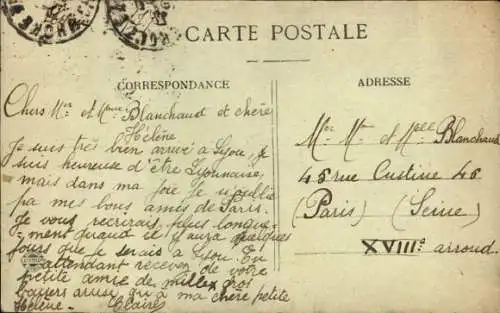 CARTE POSTALE
CORRESPONDANCE
ADRESSE
Chers Mr et Mme Blanchaud et chère
Hélène
Je suis très bien arrivé à Lyou, je
suis heureuse d'être Lyonnaise,
mais dans ma joie je n'oublie
pa mes bous amis de Paris.
Je vous recrirais plus longue-
ment quand il y aura quelques
jours que je serais à Lyou. En
attendant recevez de votre
petite amie de milles gros
baisers aussi qu'à ma chère petite
Hélène. Claire
Mr Me et Melle Blanchaud
45 rue Custine 45
(Paris) (Seine)
XVIIIe arroud.